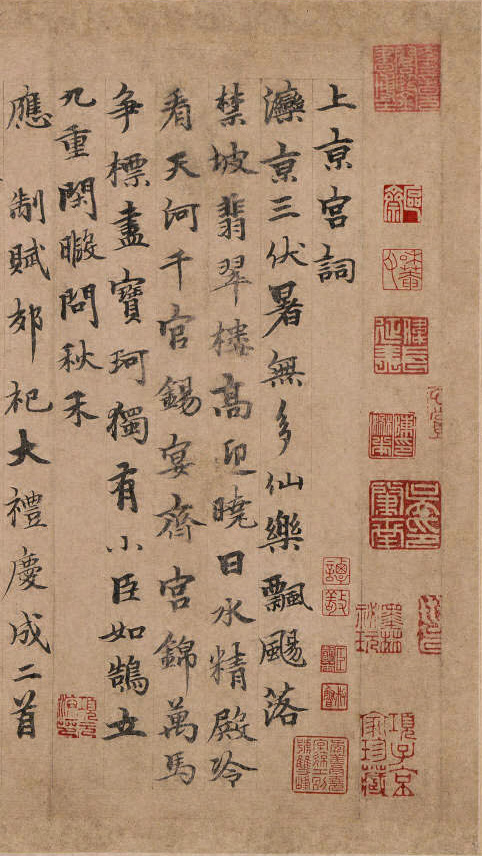 墨林
祕玩
項子京
家珍藏
上亰宮詞
灤亰三伏暑無多仙樂飄颺落
禁坡翡翠樓髙迎曉日水精殿冷
看天河千官錫宴齊宮錦萬馬
争標盡寶珂獨有小臣如鵠立
九重閒暇問秋禾
應制賦郊祀大禮慶成二首